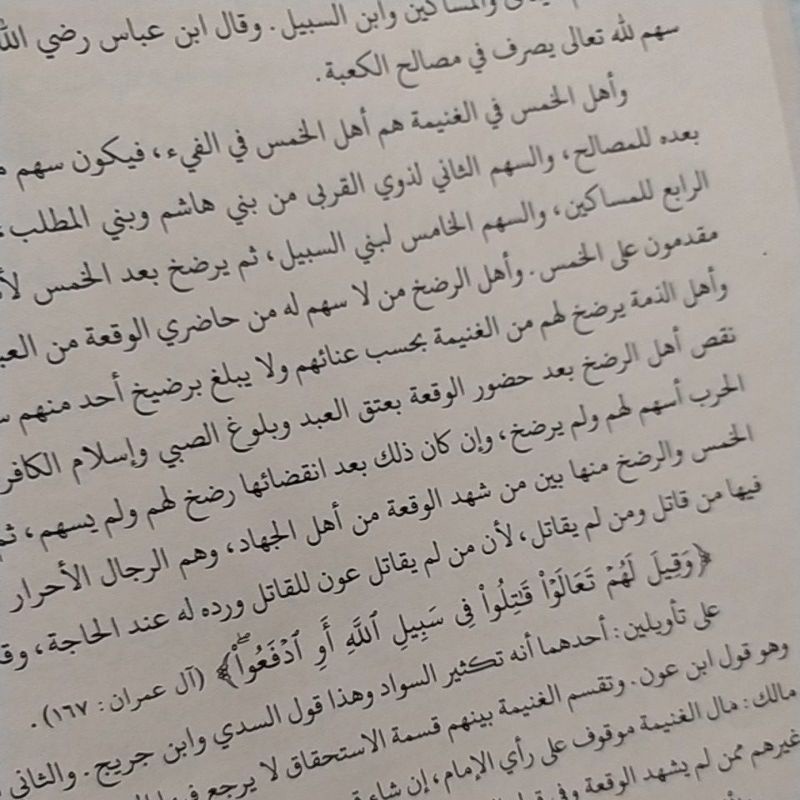 والمساكين وابن السبيل. وقال ابن عباس رضي
سهم لله تعالى يصرف في مصالح الكعبة.
وأهل الخمس في الغنيمة هم أهل الخمس في الفيء، فيكون سهم
بعده للمصالح، والسهم الثاني لذوي القربى من بني هاشم وبني المطلب،
الرابع للمساكين، والسهم الخامس لبني السبيل، ثم يرضخ بعد الخمس
مقدمون على الخمس. وأهل الرضخ من لا سهم له من حاضري الوقعة من
وأهل الذمة يرضخ لهم من الغنيمة بحسب عنائهم ولا يبلغ برضيخ أحد منهم
نقص أهل الرضخ بعد حضور الوقعة بعتق العبد وبلوغ الصبي وإسلام الكافر
الحرب أسهم لهم ولم يرضخ، وإن كان ذلك بعد انقضائها رضخ لهم ولم يسهم،
الخمس والرضخ منها بين من شهد الوقعة من أهل الجهاد، وهم الرجال الأحرار
فيها من قاتل ومن لم يقاتل، لأن من لم يقاتل عون للقاتل ورده له عند الحاجة،
﴿وَقِيلَ لَهُمْ تَعَالَوْا۟ قَـٰتِلُوا۟ فِى سَبِيلِ ٱللَّهِ أَوِ ٱدْفَعُوا۟ۖ﴾ (آل عمران: ١٦٧).
على تأويلين: أحدهما أنه تكثير السواد وهذا قول السدي وابن جريج. والثاني
وهو قول ابن عون. وتقسم الغنيمة بينهم قسمة الاستحقاق لا يرجع
مالك: مال الغنيمة موقوف على رأي الإمام، إن
غيرهم ممن لم يشهد الوقعة وفي